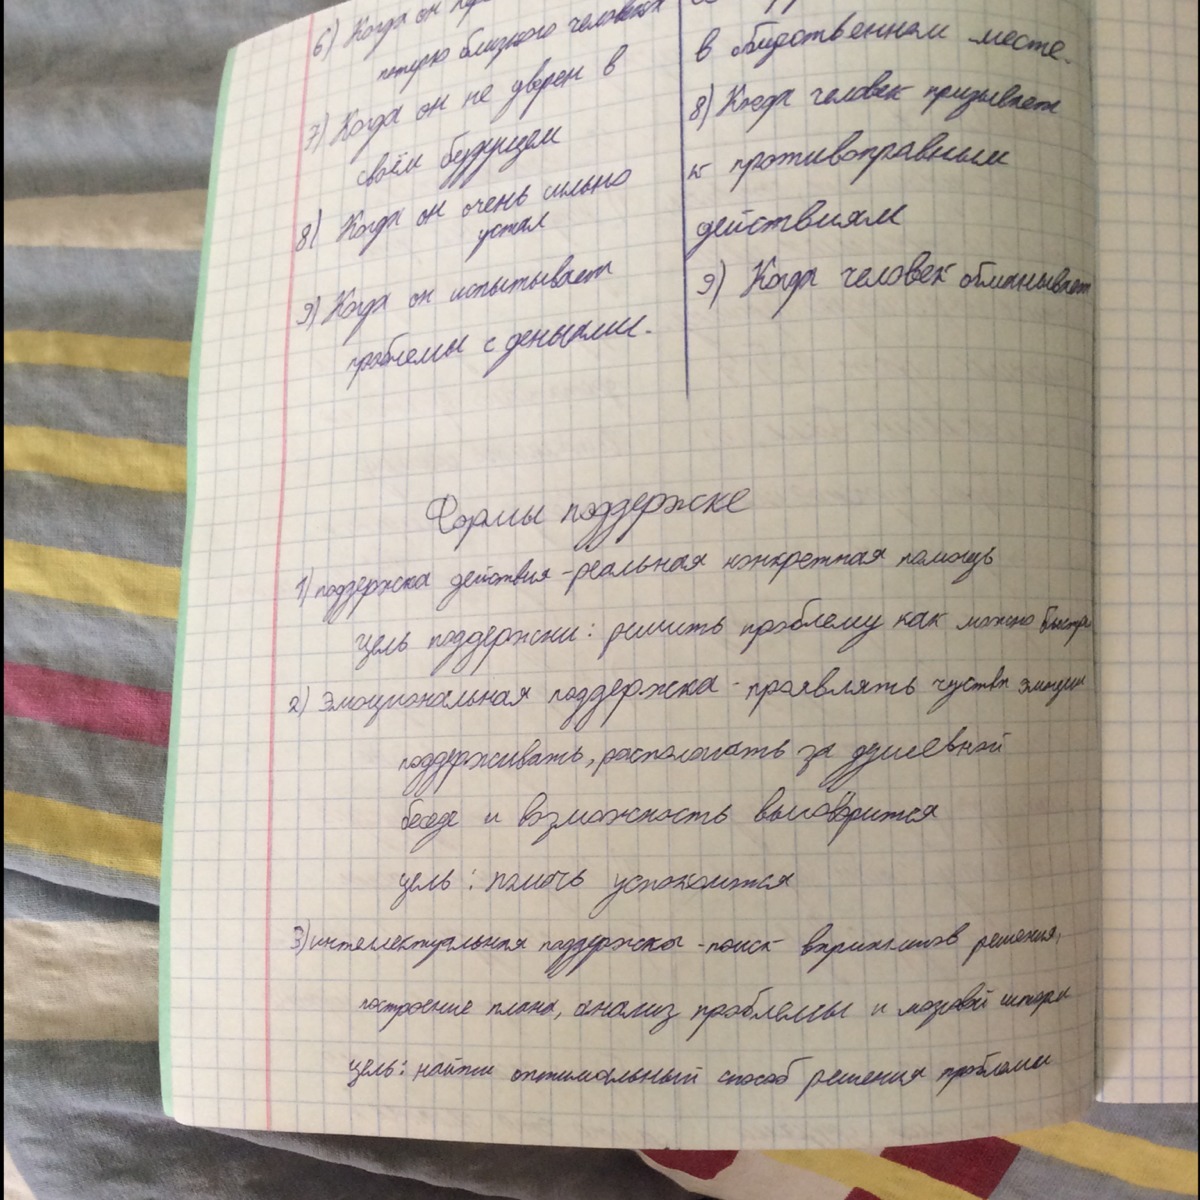 6) Когда он
потерю близкого человека
7) Когда он не уверен в
своём будущем
8) Когда он очень сильно
устал
9) Когда он испытывает
проблемы с деньгами.
в общественном месте.
8) Когда человек призывает
к противоправным
действиям
9) Когда человек обманывает
Формы поддержке
1) поддержка действия - реальная конкретная помощь
Цель поддержки: решить проблему как можно быстрее
2) Эмоциональная поддержка - проявлять чуства эмоции
поддерживать, располагать за душевной
беседе и возможность выговорится
цель: помочь успокоится
3) интеллектуальная поддержка - поиск вариантов решения,
построение плана, анализ проблемы и мозговой шторм
цель: найти оптимальный способ решения проблемы